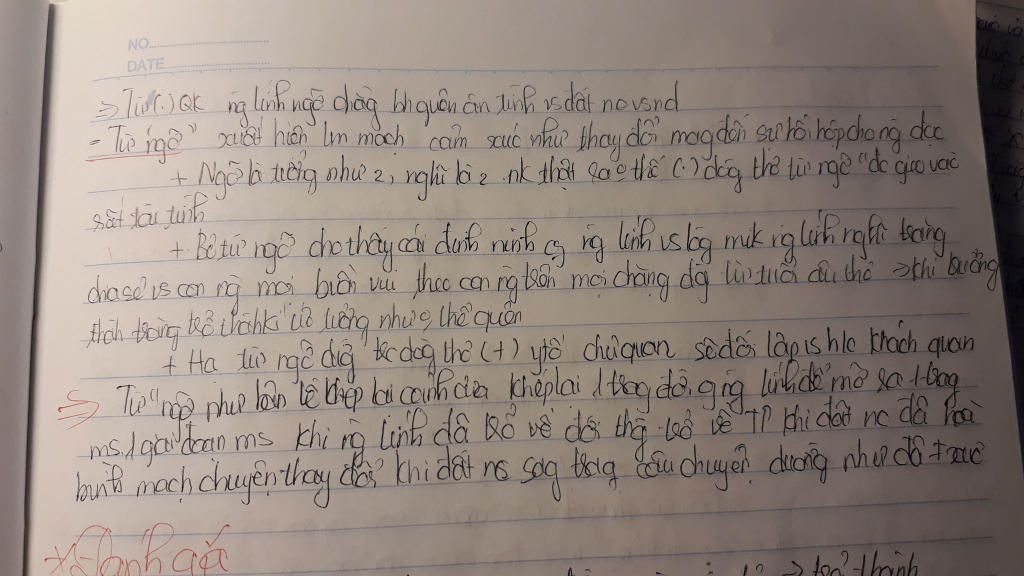 NO
DATE
=> Từ (.) QK ng lính ngỡ chẳng bh quên ân tình vs đất nc vs nd
= Từ "ngỡ" xuất hiện lm mạch cảm xúc như thay đổi mag đến sự hồi hộp cho ng đọc
+ Ngỡ là tưởng như 2, nghĩ là 2 nk thật ra o thế (.) dòng thơ từ ngỡ "đc gieo vào
rất tài tình
+ Bở từ ngỡ cho thấy cái đinh ninh cg ng lính vs lòg mik ng lính nghĩ trăng
chia sẻ vs con ng mọi buồn vui theo con ng trên mọi chặng đg từ tuổi ấu thơ => khi trưởng
thành trăng trở thành tri kỉ tưởng như o thể quên
+ Hai từ ngỡ đứg trc dòg thơ (+) ytố chủ quan sẽ đối lập vs h/c khách quan
=> Từ "ngỡ như bản lề khép lại cánh cửa khép lại 1 trag đời ng lính để mở ra 1 trag
ms, 1 giai đoạn ms khi ng lính đã trở về đời thg trở về TP khi đất nc đã hoà
bình mạch chuyện thay đổi khi đất nc sag trag câu chuyện dường như đổ + xuc
* Đánh giá
=> tạo thành